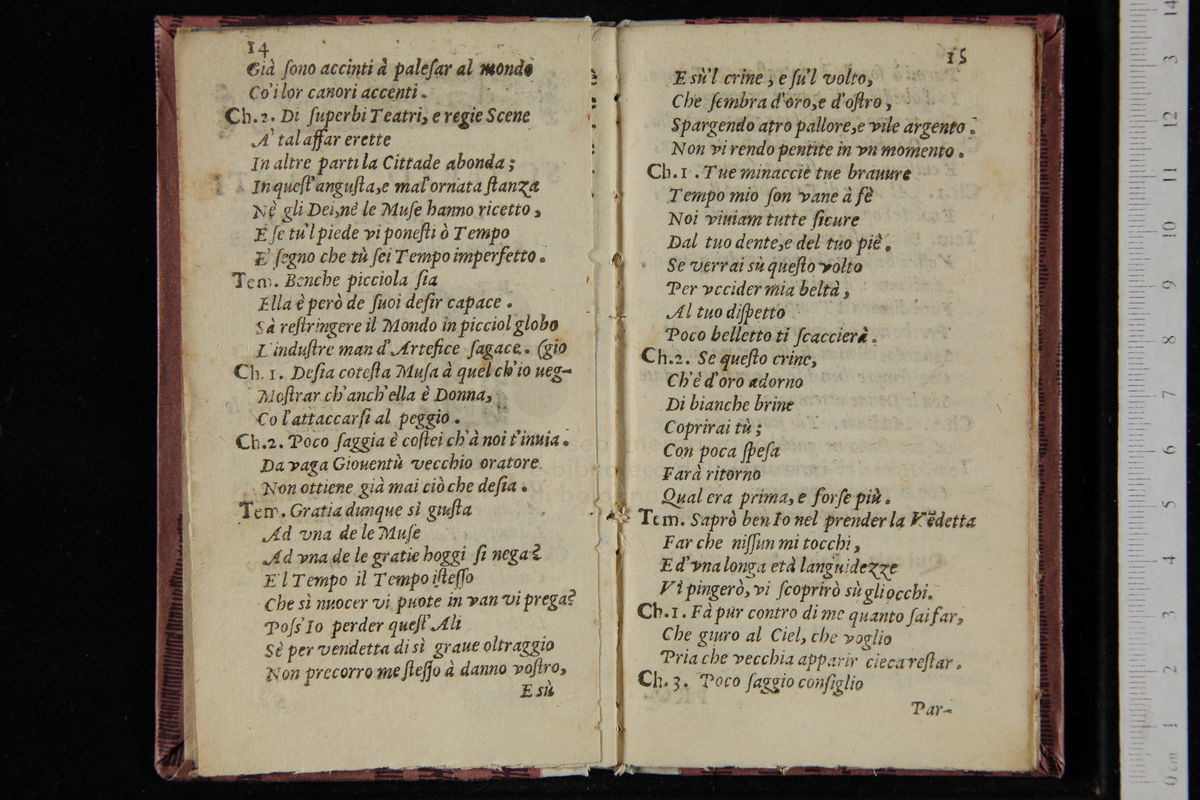 14
Già ſono accinti à paleſar al mondo
Co'i lor canori accenti.
Ch. 2. Di ſuperbi Teatri, e regie Scene
A' tal affar erette
In altre parti la Cittade abonda;
In queſt'anguſta, e mal'ornata ſtanza
Nè gli Dei, nè le Muſe hanno ricetto,
E ſe tu'l piede vi poneſti ò Tempo
E' ſegno che tù ſei Tempo imperfetto.
Tem. Benche picciola ſia
Ella è però de ſuoi deſir capace.
Sà reſtringere il Mondo in picciol globo
L'induſtre man d'Artefice ſagace. (gio
Ch. 1. Deſia coteſta Muſa à quel ch'io ueg-
Moſtrar ch'anch'ella è Donna,
Co l'attaccarſi al peggio.
Ch. 2. Poco ſaggia è coſtei ch'à noi t'inuia.
Da vaga Giouentù vecchio oratore
Non ottiene già mai ciò che deſia.
Tem. Gratia dunque sì giuſta
Ad vna de le Muſe
Ad vna de le gratie hoggi ſi nega?
E'l Tempo il Tempo iſteſſo
Che sì nuocer vi puote in van vi prega?
Poſs'Io perder queſt'Ali
Sè per vendetta di sì graue oltraggio
Non precorro me ſteſſo à danno voſtro,
E sù
15
E sù'l crine, e ſu'l volto,
Che ſembra d'oro, e d'oſtro,
Spargendo atro pallore, e vile argento.
Non vi rendo pentite in vn momento.
Ch. 1. Tue minaccie tue brauure
Tempo mio ſon vane à fè
Noi viuiam tutte ſicure
Dal tuo dente, e del tuo piè.
Se verrai sù queſto volto
Per vccider mia beltà,
Al tuo diſpetto
Poco belletto ti ſcaccierà.
Ch. 2. Se queſto crine,
Ch'è d'oro adorno
Di bianche brine
Coprirai tù;
Con poca ſpeſa
Farà ritorno
Qual era prima, e forſe più.
Tem. Saprò ben Io nel prender la Vẽdetta
Far che niſſun mi tocchi,
E d'vna longa età languidezze
Vi pingerò, vi ſcoprirò sù gli occhi.
Ch. 1. Fà pur contro di me quanto ſai far,
Che giuro al Ciel, che voglio
Pria che vecchia apparir cieca reſtar.
Ch. 3. Poco ſaggio conſiglio
Par-